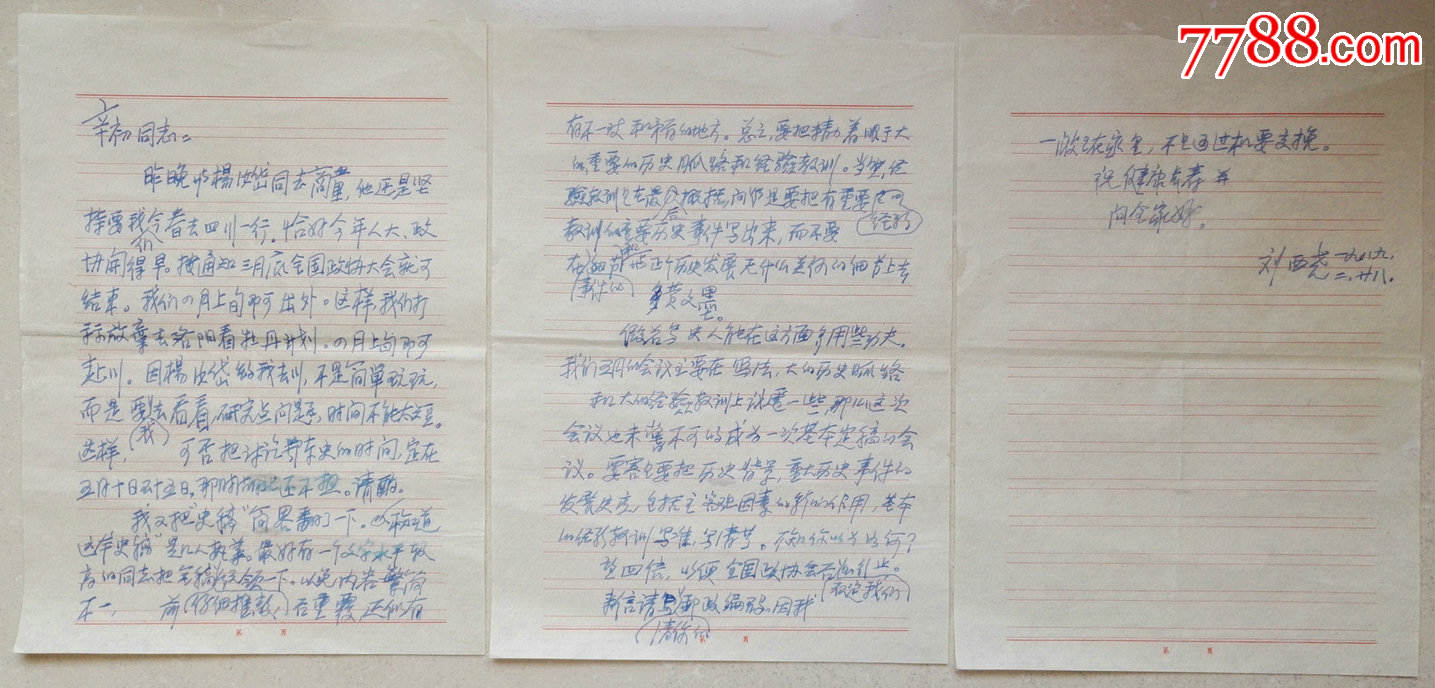 7788.com
辛初同志：
昨晚与楊汝岱同志商量，他还是坚
持要我们今春去四川一行。恰好今年人大、政
协開得早。按通知三月底全国政协大会就可
结束。我们四月上旬即可出外。这样，我们打
标放棄去洛阳看牡丹计划。四月上旬即可
赴川。因楊汝岱约我去川，不是简單玩玩，
而是要我去看看，研究点问题，时间不能太短。
这样，可否把讨论鄂东史的时间，定在
五月十日至十五日，那时还不热。请酌。
我又把"史稿"向畧翻了一下。不知道
这年史稿是几人执筆。最好有一个文字水平较
高的同志把全稿统领一下。以免内容繁简
不一，前后重覆，还似有
(仔细推敲)
有不一致和矛盾的地方。总之，要把精力着眼于大
的重要的历史脉络和经验教训。当然，经
验教训是在最后概括，向但是要把有重要
教训的重要历史事件写出来，而不要
(经验)
在细节和历史发展无什么关系的细节上去
(事件的)
多费文墨。
傲若写史人能在这方面多用些功夫。
我们五月的会议主要在写法，大的历史脉络
和大的经验教训上议一些，那么这次
会议也未嘗不可的成为一次基本定稿的会
议。要害是要把历史背景，重大历史事件的
发展史实，包括主客观因素的作用，基本
的经验教训写准，写清楚。不知你以为如何？
望回信，以便全国政协会后
新言请写邮政编码。因我
(请你的)
一般在家里，不通过机要交换。
祝健康长寿并
问全家好。
刘西尧 一九八九、
二、廿八。
第 页
第 页
第 页